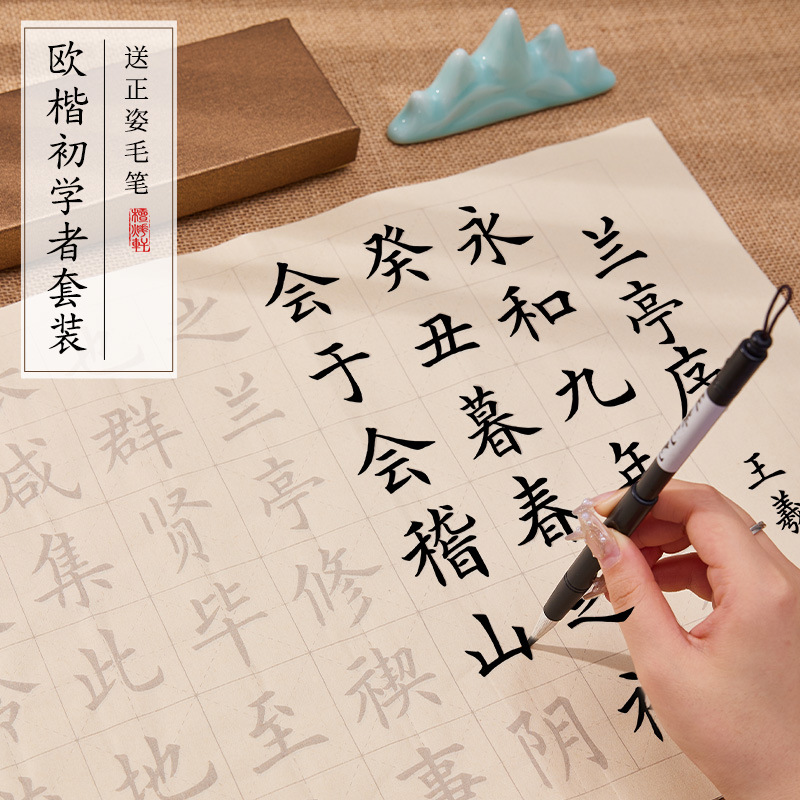 欧楷初学者套装
送正姿毛笔
王羲
兰亭序
永和九年
癸丑暮春之
会于会稽山阴
之兰亭修禊事
也群贤毕至
咸集此地